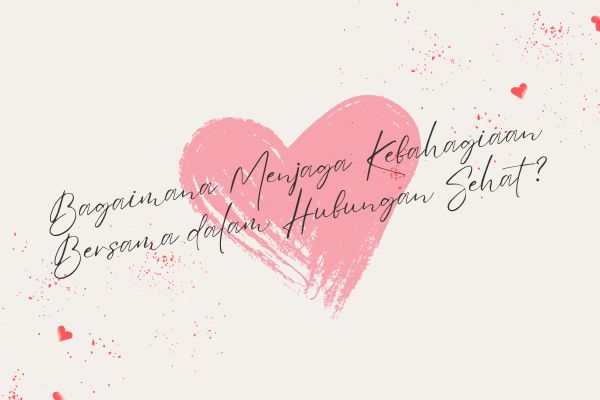 Bagaimana Menjaga Kebahagiaan
Bersama dalam Hubungan Sehat?